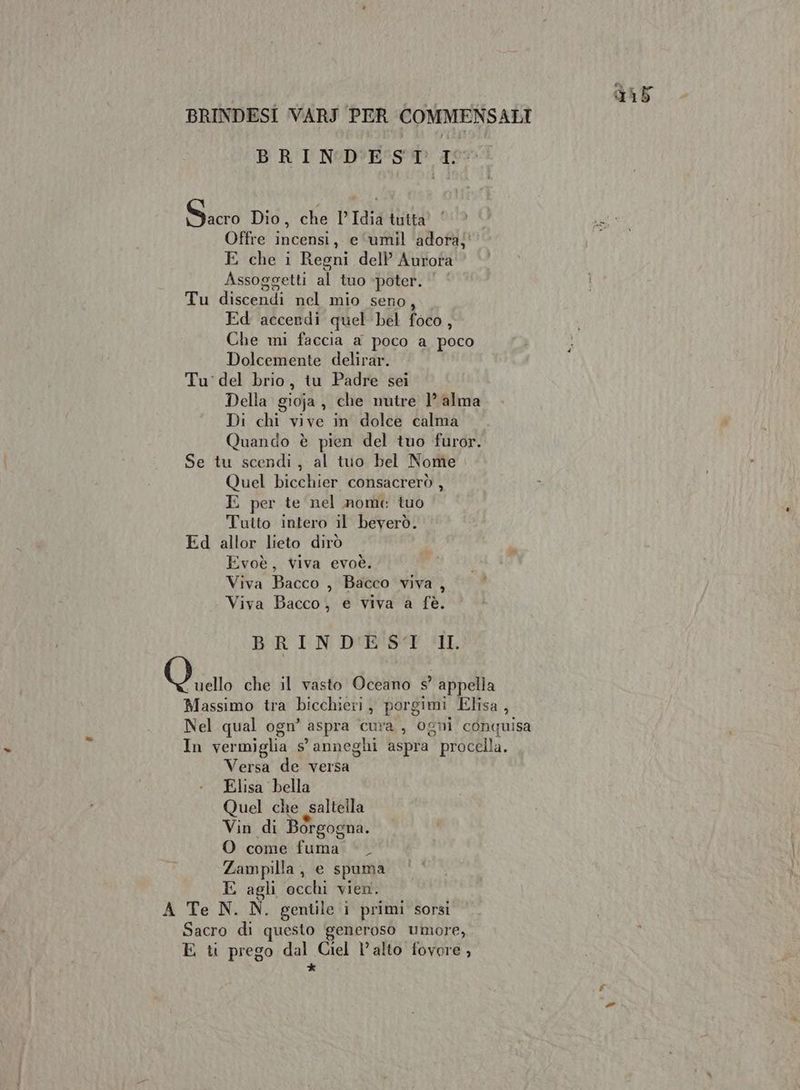 215
BRINDESI VARJ PER COMMENSALI
BRINDESI I.
Sacro Dio, che l'Idia tutta
Offre incensi, e umil adora,
E che i Regni dell' Aurora
Assoggetti al tuo poter.
Tu discendi nel mio seno,
Ed accendi quel bel foco,
Che mi faccia a poco a poco
Dolcemente delirar.
Tu del brio, tu Padre sei
Della gioja, che nutre l'alma
Di chi vive in dolce calma
Quando è pien del tuo furor.
Se tu scendi, al tuo bel Nome
Quel bicchier consacrerò,
E per te nel nome tuo
Tutto intero il beverò.
Ed allor lieto dirò
Evoè, viva evoè.
Viva Bacco, Bacco viva,
Viva Bacco, e viva a fè.
BRINDESI II.
Quello che il vasto Oceano s'appella
Massimo tra bicchieri, porgimi Elisa,
Nel qual ogn' aspra cura, ogni conquisa
In vermiglia s'anneghi aspra procella.
Versa de versa
Elisa bella
Quel che saltella
Vin di Borgogna.
O come fuma
Zampilla, e spuma
E agli occhi vien.
A Te N. N. gentile i primi sorsi
Sacro di questo generoso umore,
E ti prego dal Ciel l'alto fovore,
*